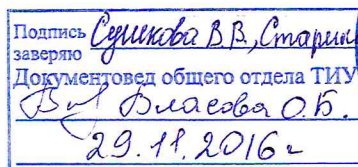 Подпись Сушкова В.В., Старик
заверяю
Документовед общего отдела ТИУ
Власова О.Б.
29.11.2016г